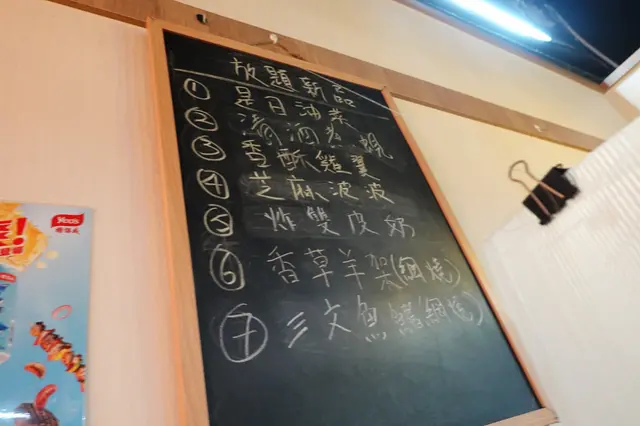 放題新品
① 是日油菜
② 清酒煮蜆
③ 香酥雞翼
④ 芝麻波波
⑤ 炸雙皮奶
⑥ 香草羊架(網燒)
⑦ 三文魚鰭(網燒)
Yeo's
楊協成